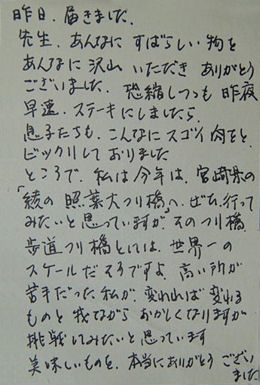 昨日、届きました、
先生、あんなに すばらしい 物を
あんなに 沢山 いただき ありがとう
ございました。恐縮しつつも 昨夜
早速、ステーキにしましたら、
息子たちも、こんなに スゴイ 肉をと
ビックリして おりました
ところで、私は 今年は、宮崎県の
「綾の 照葉大つり橋へ、ぜひ、行って
みたいと 思っていますが、そのつり橋
歩道つり橋としては、世界一の
スケールだそうですよ、高い所が
苦手だった 私が、変われば 変わる
ものと 我ながら おかしくなりますが
挑戦してみたいと 思っています
美味しいものを、本当に ありがとう ござい
ました